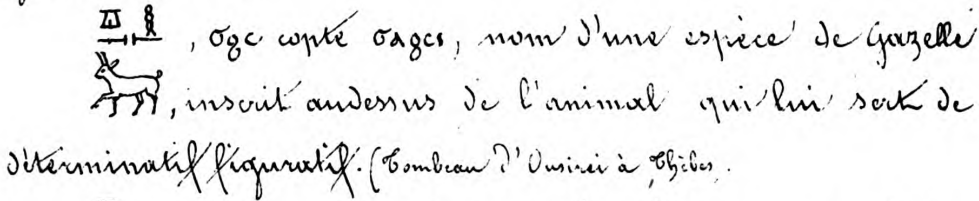 𓎼𓎛𓊃, ϭϩⲥ copte ϭⲁϩⲥⲓ, nom d'une espèce de Gazelle
𓃴, inscrit audessus de l'animal qui lui sert de
déterminatif figuratif. (Tombeau d'Ousirei à Thèbes.